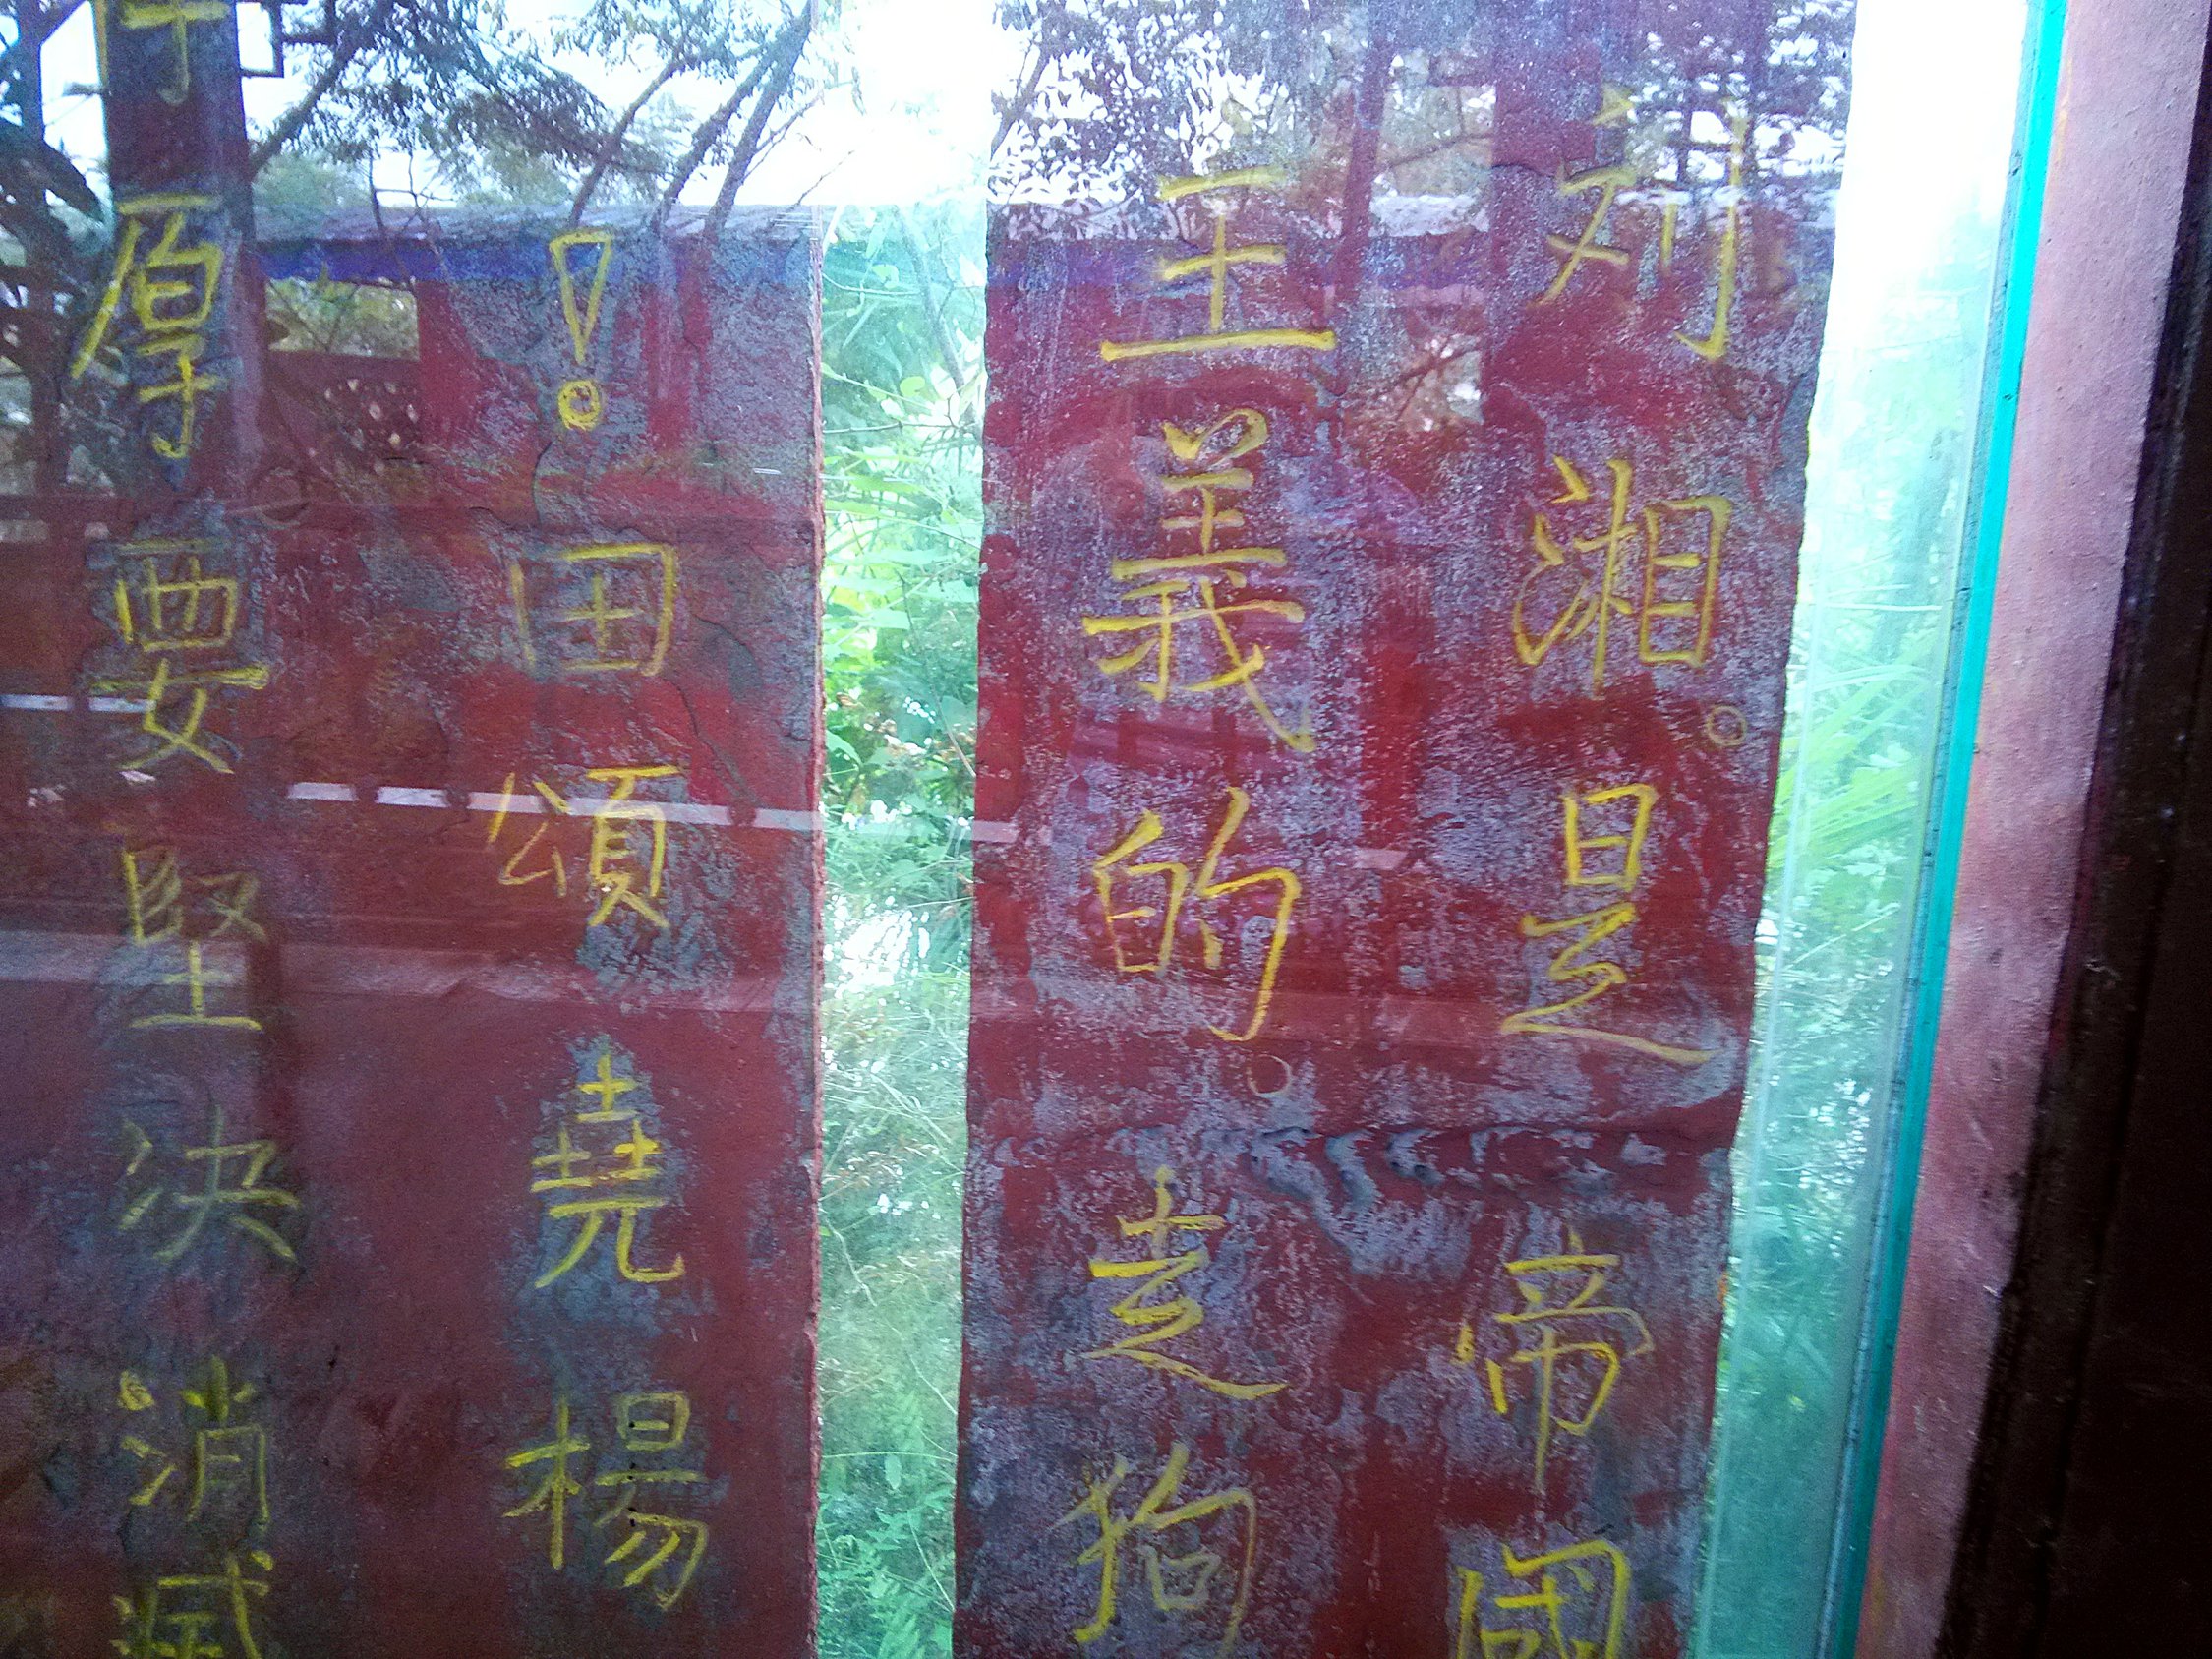 刘湘。是帝國
主義的。走狗
！田頌堯楊
厚要堅決消滅